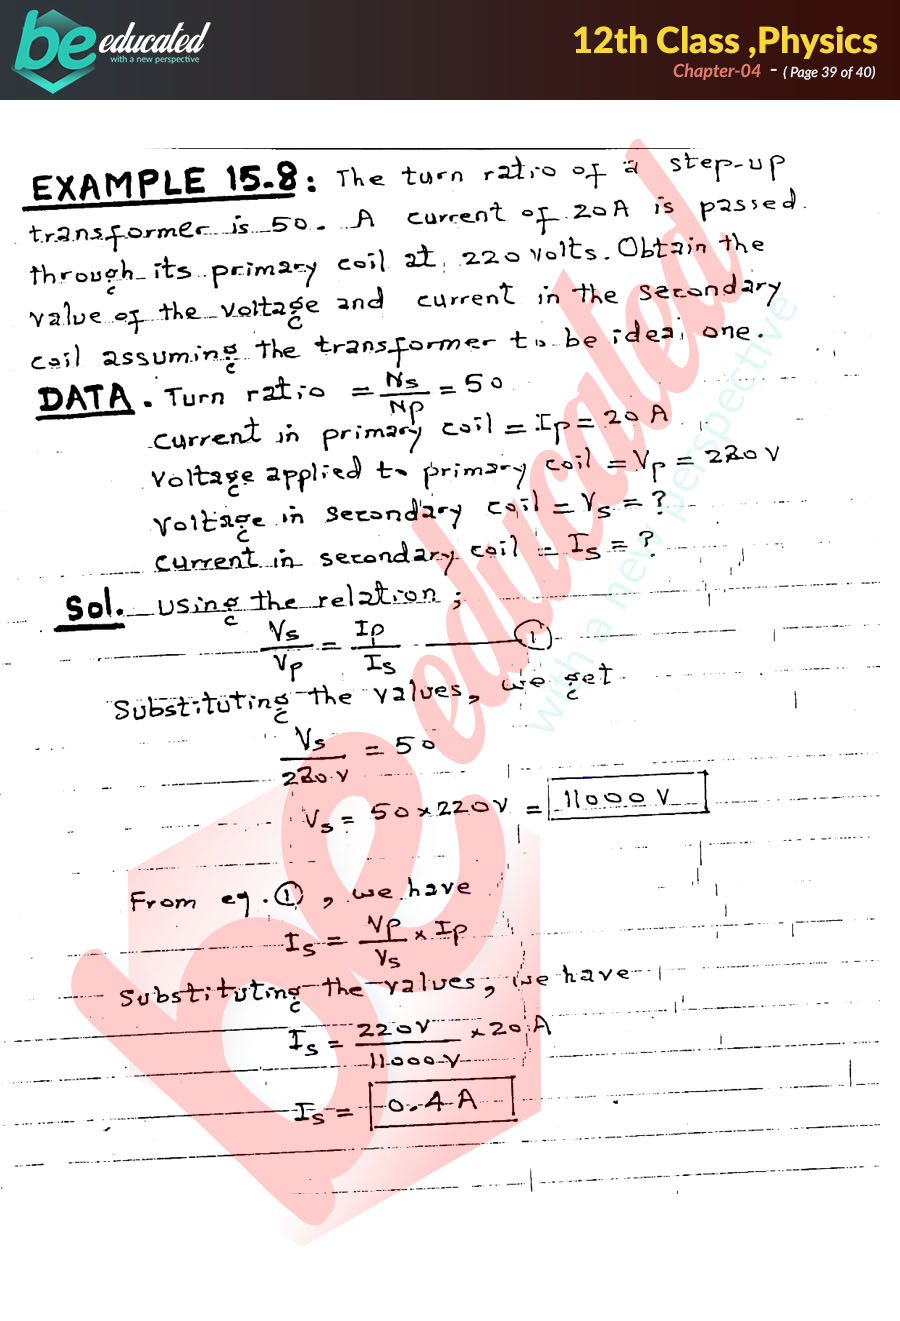 be educated
with a new perspective
12th Class ,Physics
Chapter-04 - ( Page 39 of 40)
EXAMPLE 15.8: The turn ratio of a step-up
transformer is 50. A current of 20A is passed
through its primary coil at 220 volts. Obtain the
value of the voltage and current in the secondary
coil assuming the transformer to be ideal one.
DATA. Turn ratio = Ns/Np = 50
Current in primary coil = Ip = 20 A
Voltage applied to primary coil = Vp = 220 V
Voltage in secondary coil = Vs = ?
Current in secondary coil = Is = ?
Sol. Using the relation;
Vs/Vp = Ip/Is ①
Substituting the values, we get
Vs/220 V = 50
Vs = 50 × 220V = 11000 V
From eq. ①, we have
Is = Vp/Vs × Ip
Substituting the values, we have
Is = 220V/11000V × 20 A
Is = 0.4 A
be educated
with a new perspective